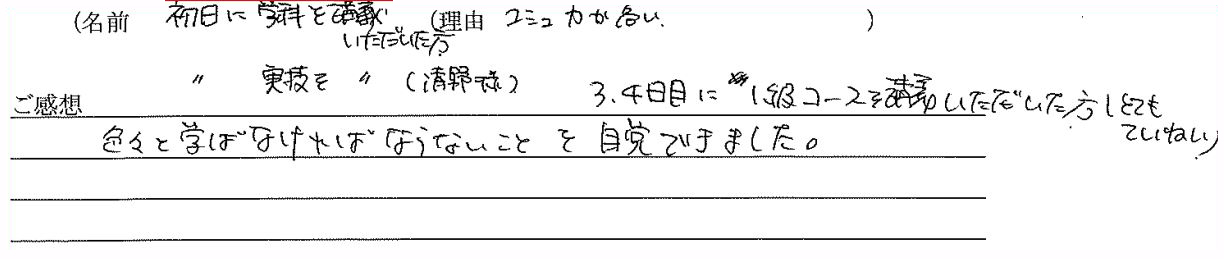 (名前 初日に学科を講義 (理由 コミュ力が高い. )
いただいた方
〃 実技を 〃 (清野様) 3.4日目に 1級コースを講義いただいた方(とても
ていねい)
ご感想
色々と学ばなければならないことを自覚できました。